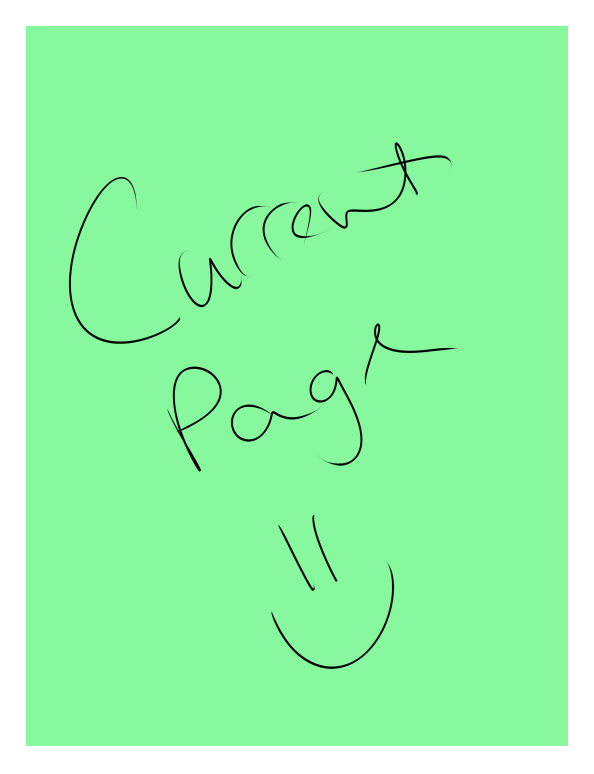 Current
Page